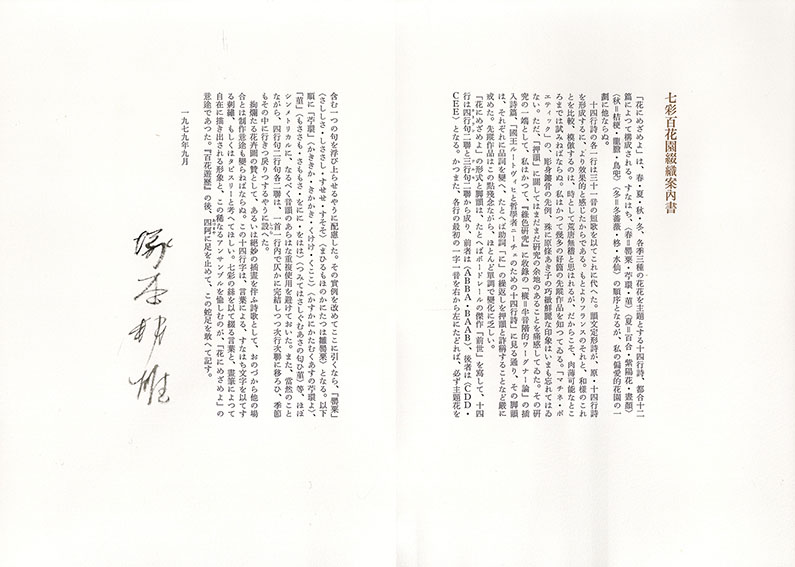 七彩百花園綴織案內書
「花にめざめよ」は、春・夏・秋・冬、各季三種の花花を主題とする十四行詩、都合十二
篇によつて構成される。すなはち、（春＝罌粟・苧環・菫）（夏＝百合・紫陽花・晝顏）
（秋＝桔梗・龍膽・鳥兜）（冬＝冬薔薇・柊・水仙）の順序となるが、私の偏愛的花園の一
劃に他ならぬ。
十四行詩の各一行は三十一音の短歌を以てこれに代へた。頭文定形詩が、原・十四行詩
を形成するに、より效果的と感じたからである。もとよりフランスのそれと、和樣のこれ
とを比較、模倣するのは、時として荒唐無稽と思はれるが、だからこそ、肉薄可能なとこ
ろまでは試みねばならぬ。私はかつて幾多の好箇の先蹤作品も知つてゐる。「マチネ・ポ
エティック」の、彫身鏤骨の先例、殊に原條あき子の巧緻鮮麗な印象はいまも忘れてはゐ
ない。ただ、「押韻」に關してはまだまだ研究の余地のあることを痛感してゐた。その研
究の一端として、私はかつて、『綠色研究』に收錄の「橫＝半音階的ワーグナー論」の插
入詩篇、「國王ルートヴィヒと哲學者ニーチェのための十四行詩」に見る通り、その脚韻
は、それぞれに品詞を變へ、たとへば助詞「に」の繰返しを押韻と詐稱することなど嚴に
戒めた。先蹤作品はこの點殘念ながら、ほとんど單調で變化に乏しい。
「花にめざめよ」の形式と脚韻は、たとへばボードレールの傑作「前世」を寫して、十四
行は四行句二聯と三行句二聯から成り、前者は（ABBA・BAAB）、後者は（CDD・
CEE）となる。かつまた、各行の最初の一字一音を右から左にたどれば、必ず主題花を
含む一つの句を浮び上らせるやうに配慮した。その實例を改めてここに引くなら、「罌粟」
（さししさ・しささし・すせせ・すそそ）（まひるもほのかにたつは雛罌粟）となる。以下
順に「苧環」（かききか・きかかき・くけけ・くここ）（かすかにかたむくあすの苧環よ）、
「菫」（もささも・さももさ・をにに・をはは）（つみてはさしぐむあさの匂ひ菫）等、ほぼ
シンメトリカルに、なるべく音韻のあらはな重複使用を避けておいた。また、當然のこと
ながら、四行句二行句各二聯は、一首一行內で仄かに完結しつつ次行次聯に移ろひ、季節
もその中に行きつ戾りつするやうに設へた。
絢爛たる花卉圖の贊として、あるいは絕妙の插畫を伴ふ詩歌として、おのづから他の場
合とは制作意途も變らねばならぬ。この十四行字は、言葉による、すなはち文字を以てす
る刺繡、もしくはタピスリーと考へてほしい。七彩の絲を以て綴る言葉と、畫筆によつて
自在に描き出される形象と、この稀なるアンサンブルを愉しむのが、「花にめざめよ」の
意途であつた。『百花遊歷』の後、四阿に足を止めて、この蛇足を敢へて記す。
一九七九年九月
塚本邦雄